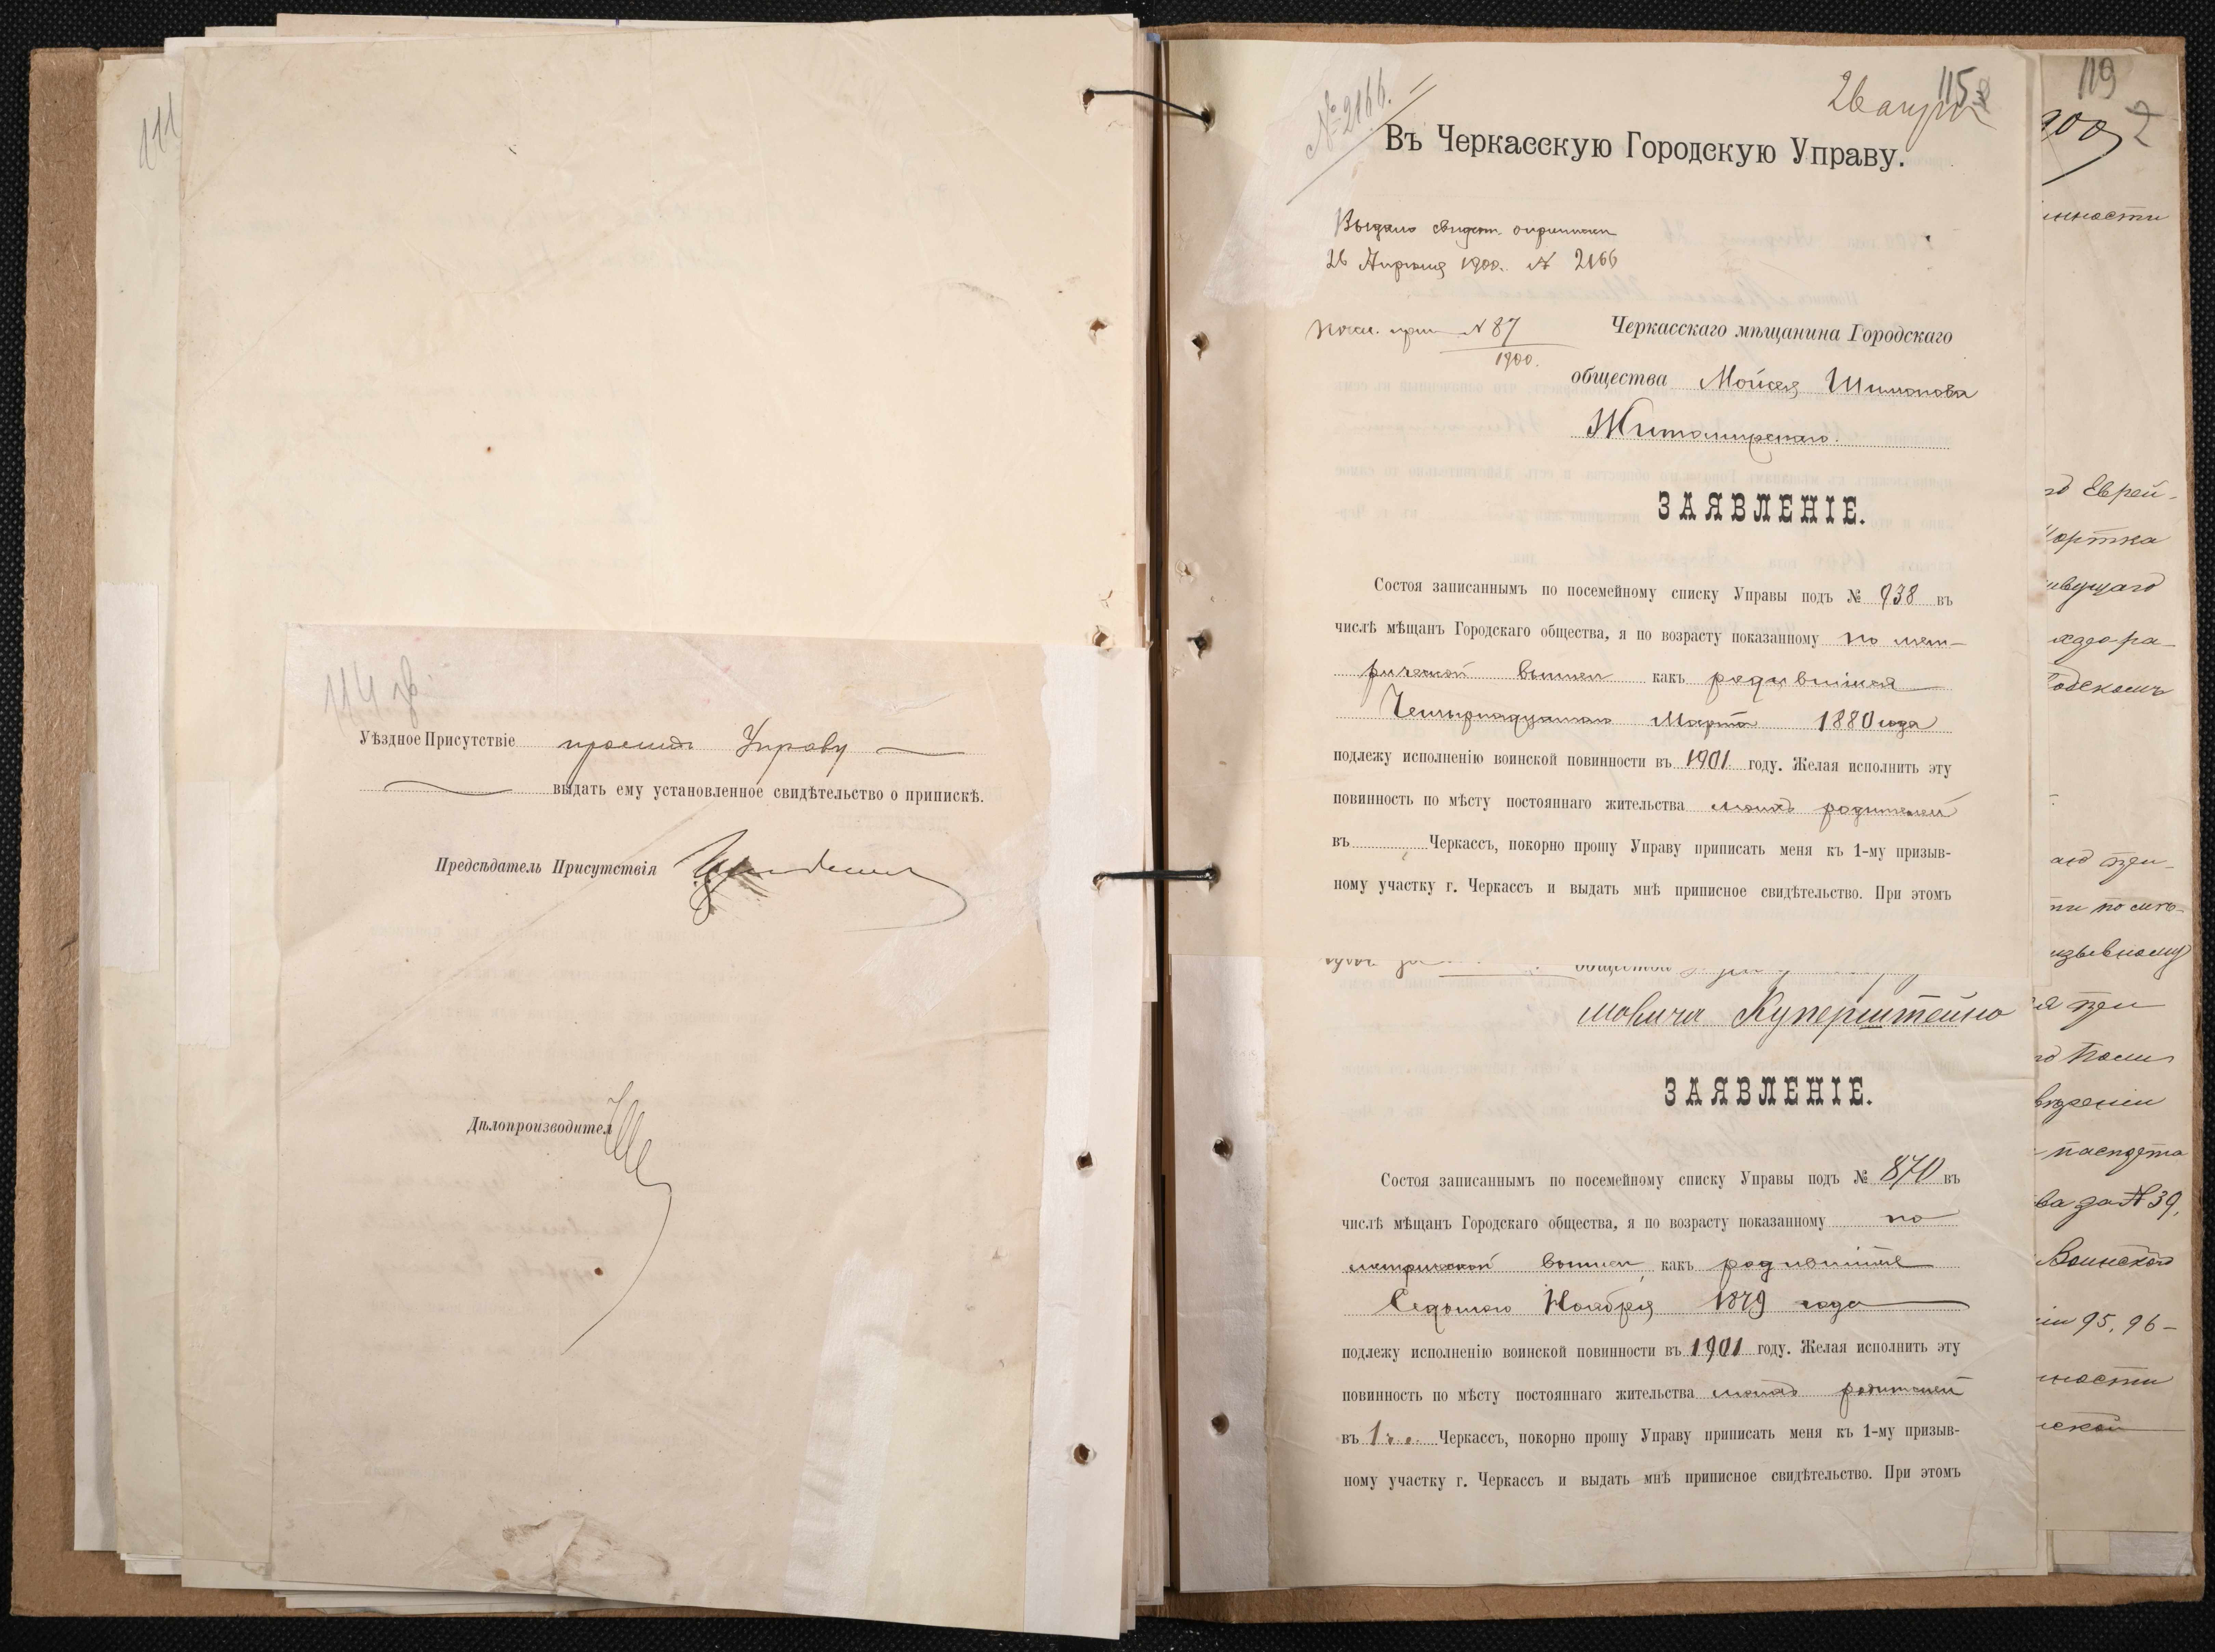 111
114 об
Уѣздное Присутствіе проситъ Управу
выдать ему установленное свидѣтельство о припискѣ.
Предсѣдатель Присутствія
Дѣлопроизводител
№ 2166.
26 апрѣ
115
Въ Черкасскую Городскую Управу.
Выдано свидѣт. о припискѣ
26 Апрѣля 1900. № 2166
№ 87
1900.
Черкасскаго мѣщанина Городскаго
общества Мойсея Шимонова
Житомирскаго.
ЗАЯВЛЕНІЕ.
Состоя записаннымъ по посемейному списку Управы подъ № 938 въ
числѣ мѣщанъ Городскаго общества, я по возрасту показанному по мет-
рической выписи какъ родившійся
Четырнадцатаго Марта 1880 года
подлежу исполненію воинской повинности въ 1901 году. Желая исполнить эту
повинность по мѣсту постояннаго жительства моихъ родителей
въ Черкассъ, покорно прошу Управу приписать меня къ 1-му призыв-
ному участку г. Черкассъ и выдать мнѣ приписное свидѣтельство. При этомъ
общества
мовича Куперштейна
ЗАЯВЛЕНІЕ.
Состоя записаннымъ по посемейному списку Управы подъ № 870 въ
числѣ мѣщанъ Городскаго общества, я по возрасту показанному по
метрической выписи, какъ родившійся
Седьмого Ноября 1879 года
подлежу исполненію воинской повинности въ 1901 году. Желая исполнить эту
повинность по мѣсту постояннаго жительства моихъ родителей
въ 1 Черкассъ, покорно прошу Управу приписать меня къ 1-му призыв-
ному участку г. Черкассъ и выдать мнѣ приписное свидѣтельство. При этомъ
119
900
нности
Еврей-
ортка
ивущаго
аго при-
ти по мѣ-
изывному
я при
паспорта
ва за № 39,
Воинской
95, 96-
нности